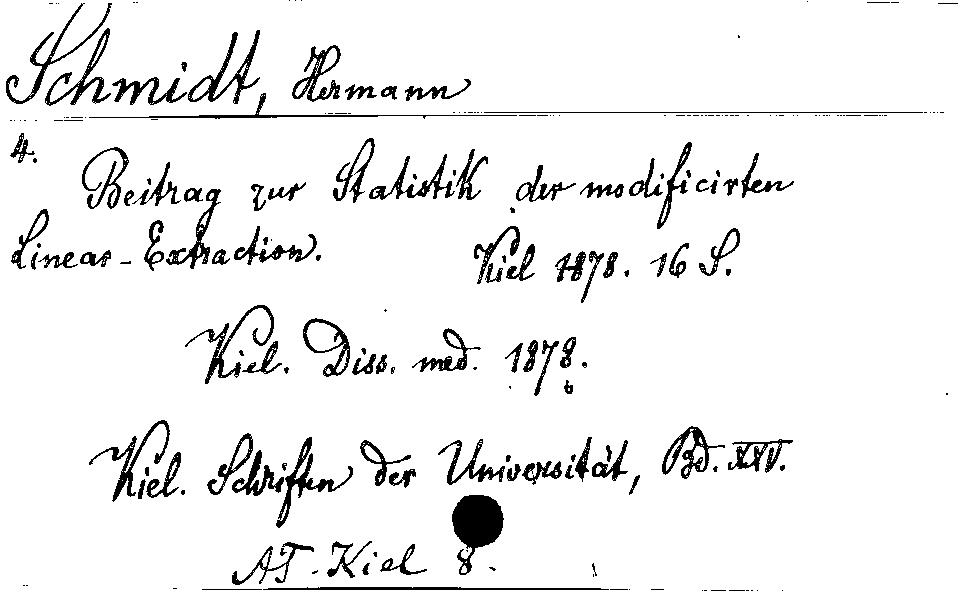 Schmidt, Hermann
4.
Beitrag zur Statistik der modificirten
Linear-Extraction. Kiel 1878. 16 S.
Kiel. Diss. med. 1878.
Kiel. Schriften der Universität, Bd. XXV.
AT-Kiel 8.